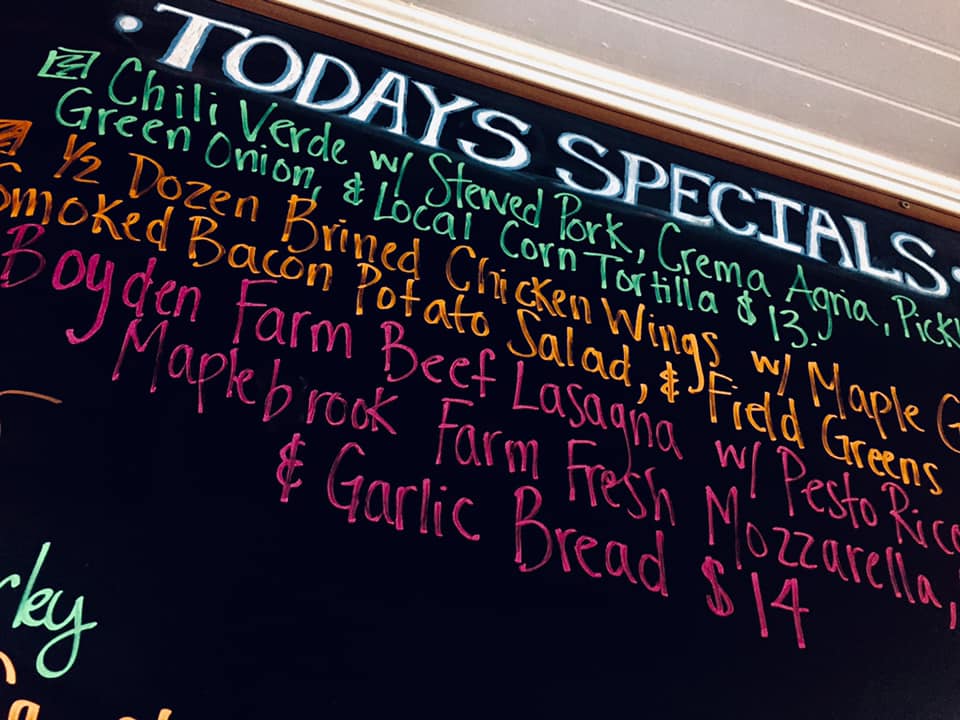 ·TODAYS SPECIALS·
Chili Verde w/ Stewed Pork, Crema Agria, Pickl
Green Onion, & Local Corn Tortilla $13.
1/2 Dozen Brined Chicken Wings w/ Maple G
Smoked Bacon Potato Salad, & Field Greens
Boyden Farm Beef Lasagna w/ Pesto Rico
Maplebrook Farm Fresh Mozzarella,
& Garlic Bread $14
rky